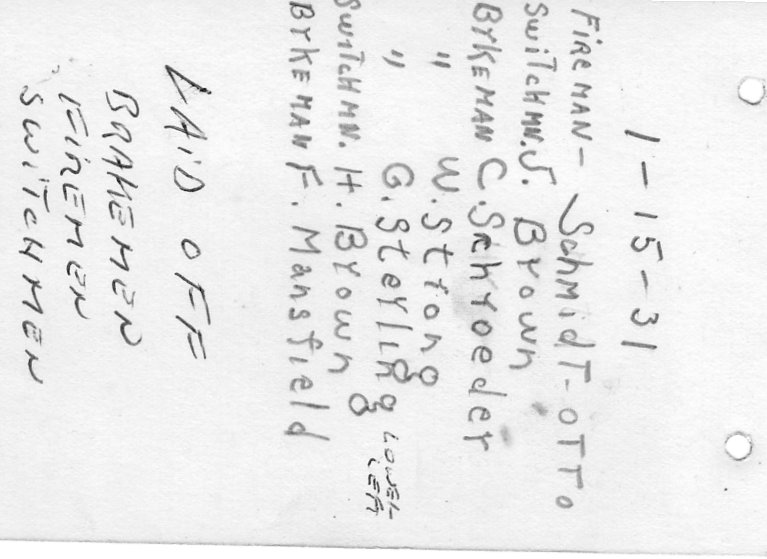 1-15-31
FiREMAN- SchmidT-OTTo
SWiTCHMN. J. Brown
BrKEMAN C. Schroeder
" W. Strong
" G. Sterling LOWER-LEFT
SWITCHMN. H. Brown
BrKEMAN F. Mansfield
LAiD OFF
BRAKEMEN
FiREMEN
SWiTCHMEN